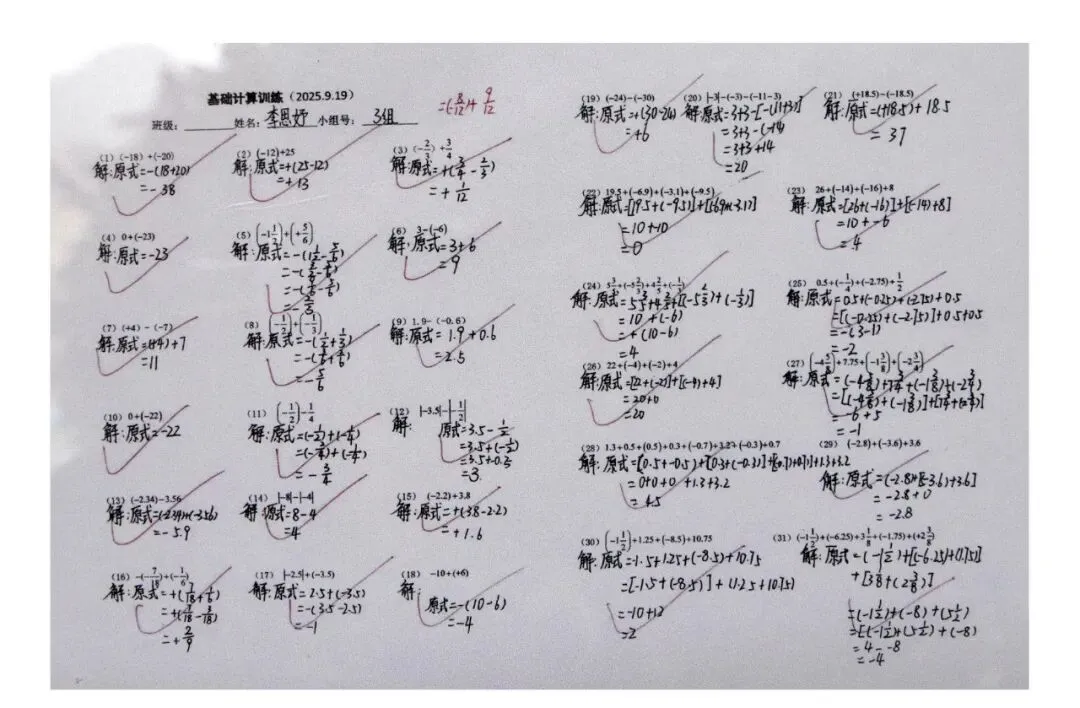 基础计算训练（2025.9.19）
=(-8/12)+ 9/12
班级：______姓名：李思妤 小组号：3组
（1）(-18)+(-20)
解:原式=-(18+20)
=-38
（2）(-12)+25
解:原式=+(25-12)
=+13
（3）(-2/3)+3/4
解:原式=+(3/4-2/3)
=+1/12
（4）0+(-23)
解:原式=-23
（5）(-1 1/2)+(+5/6)
解:原式=-(1 1/2-5/6)
=-2/3
（6）3-(-6)
解:原式=3+6
=9
（7）(+4)-(-7)
解:原式=(+4)+7
=11
（8）(-1/2)+(-1/3)
解:原式=-(1/2+1/3)
=-(3/6+2/6)
=-5/6
（9）1.9-(-0.6)
解:原式=1.9+0.6
=2.5
（10）0+(-22)
解:原式=-22
（11）(-1/2)-1/4
解:原式=(-1/2)+(-1/4)
=(-2/4)+(-1/4)
=-3/4
（12）|-3.5|-|-1/2|
解:
原式=3.5-1/2
=3.5+(-1/2)
=3.
（13）(-2.34)-3.56
解:原式=(-2.34)+(-3.56)
=-5.9
（14）|-8|-|-4|
解:原式=8-4
=4
（15）(-2.2)+3.8
解:原式=+(3.8-2.2)
=+1.6
（16）-(-7/18)+(-1/6)
=+(7/18-3/18)
=+2/9
（17）|-2.5|+(-3.5)
解:原式=2.5+(-3.5)
=-(3.5-2.5)
=-1
（18）-10+(+6)
解:
原式=-(10-6)
=-4
（19）(-24)-(-30)
解:原式=+(30-24)
=+6
（20）|-3|-(-3)-(-11-3)
解:原式=3+3-[-(11+3)]
=3+3-(-14)
=3+3+14
=20
（21）(+18.5)-(-18.5)
解:原式=(+18.5)+18.5
=37
（22）19.5+(-6.9)+(-3.1)+(-9.5)
解:原式=[19.5+(-9.5)]+[(-6.9)+(-3.1)]
=10+-10
=0
（23）26+(-14)+(-16)+8
解:原式=[26+(-16)]+[(-14)+8]
=10+-6
=4
（24）5 3/5+(-5 2/3)+4 2/5+(-1/3)
=10+(-6)
=+(10-6)
=4
（25）0.5+(-1/4)+(-2.75)+1/2
解:原式=0.5+(-0.25)+(-2.75)+0.5
=[(-0.25)+(-2.75)]+0.5+0.5
=-(3-1)
=-2
（26）22+(-4)+(-2)+4
解:原式=[22+(-2)]+[(-4)+4]
=20+0
=20
（27）(-4 5/8)+7.75+(-1 3/8)+(-2 3/4)
解:原式=(-4 5/8)+7 3/4+(-1 3/8)+(-2 3/4)
=[(-4 5/8)+(-1 3/8)]+[7 3/4+(-2 3/4)]
=-6+5
=-1
（28）1.3+0.5+(0.5)+0.3+(-0.7)+3.2+(-0.3)+0.7
=0+0+0+1.3+3.2
=4.5
（29）(-2.8)+(-3.6)+3.6
解:原式=(-2.8)+[(-3.6)+3.6]
=-2.8+0
=-2.8
（30）(-1 1/2)+1.25+(-8.5)+10.75
解:原式=-1.5+1.25+(-8.5)+10.75
=[-1.5+(-8.5)]+(1.25+10.75)
=-10+12
=2
（31）(-1 1/2)+(-6.25)+3 1/8+(-1.75)+(+2 3/8)
=(-1 1/2)+(-8)+(5 1/2)
=[(-1 1/2)+(5 1/2)+(-8)
=4--8
=-4